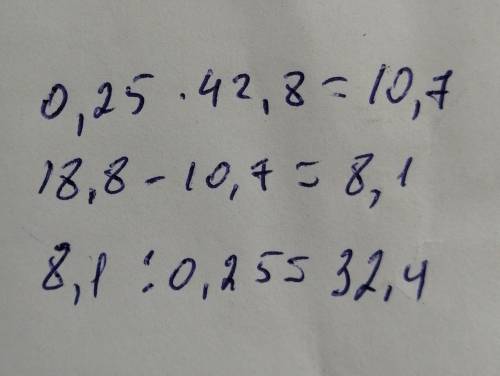 0,25 · 42,8 = 10,7
18,8 - 10,7 = 8,1
8,1 : 0,25 = 32,4